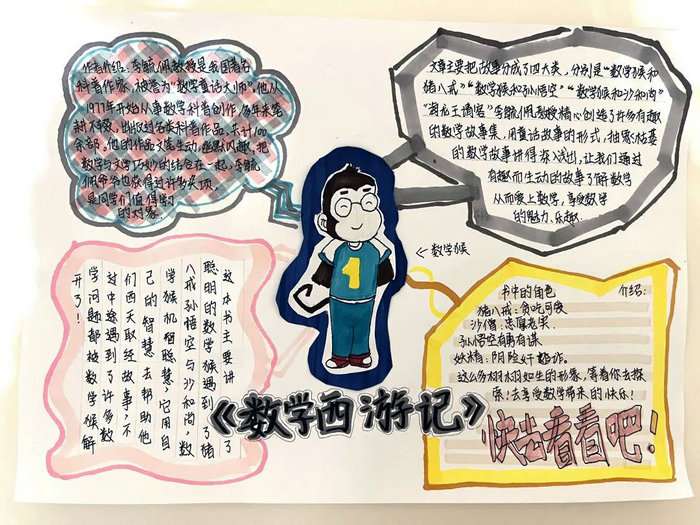 作者介绍：李毓佩教授是我国著名
科普作家，被誉为“数学童话大师”。他从
1977年开始从事数学科普创作，多年来笔
耕不辍，出版过各类科普作品，共计100
余部。他的作品文笔生动，幽默风趣，把
数学与文学巧妙的结合在一起，李毓
佩爷爷也获得过许多大项，
是同学们值得
的对象
文章主要把故事分成了四大类，分别是“数学猴和
猪八戒”“数学猴和孙悟空”“数学猴和沙和尚”
李毓佩教授精心创造了许多有趣
的数学故事集，用童话故事的形式，把原本枯燥
的数学故事讲得深入浅出，让我们通过
有趣而生动的故事了解数学
从而爱上数学，享受数学
的魅力、乐趣。
←数学猴
这本书主要讲了
聪明的数学猴遇到了猪
八戒孙悟空与沙和尚，数
学猴机智聪慧，它用自
己的智慧去帮助他
们西天取经故事，不
过中途遇到了许多数
学问题都被数学猴解
开了！
书中的角色介绍：
猪八戒：贪吃可爱
沙僧：忠厚老实
孙悟空有勇有谋
妖精：阴险奸诈
这么多栩栩如生的形象，等着你去探
索！去享受数学带来的快乐！
快去看看吧！
《数学西游记》
1